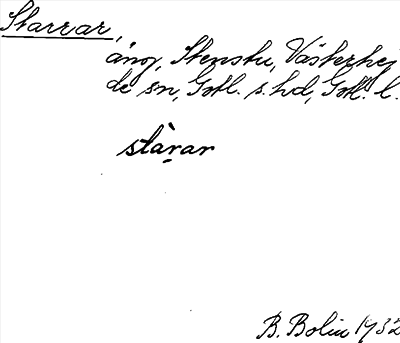 Starrar,
äng, Stenstu, Västerhej
de sn, Gotl. s. hd, Gotl. l.
stàrar
B. Bolin 1932